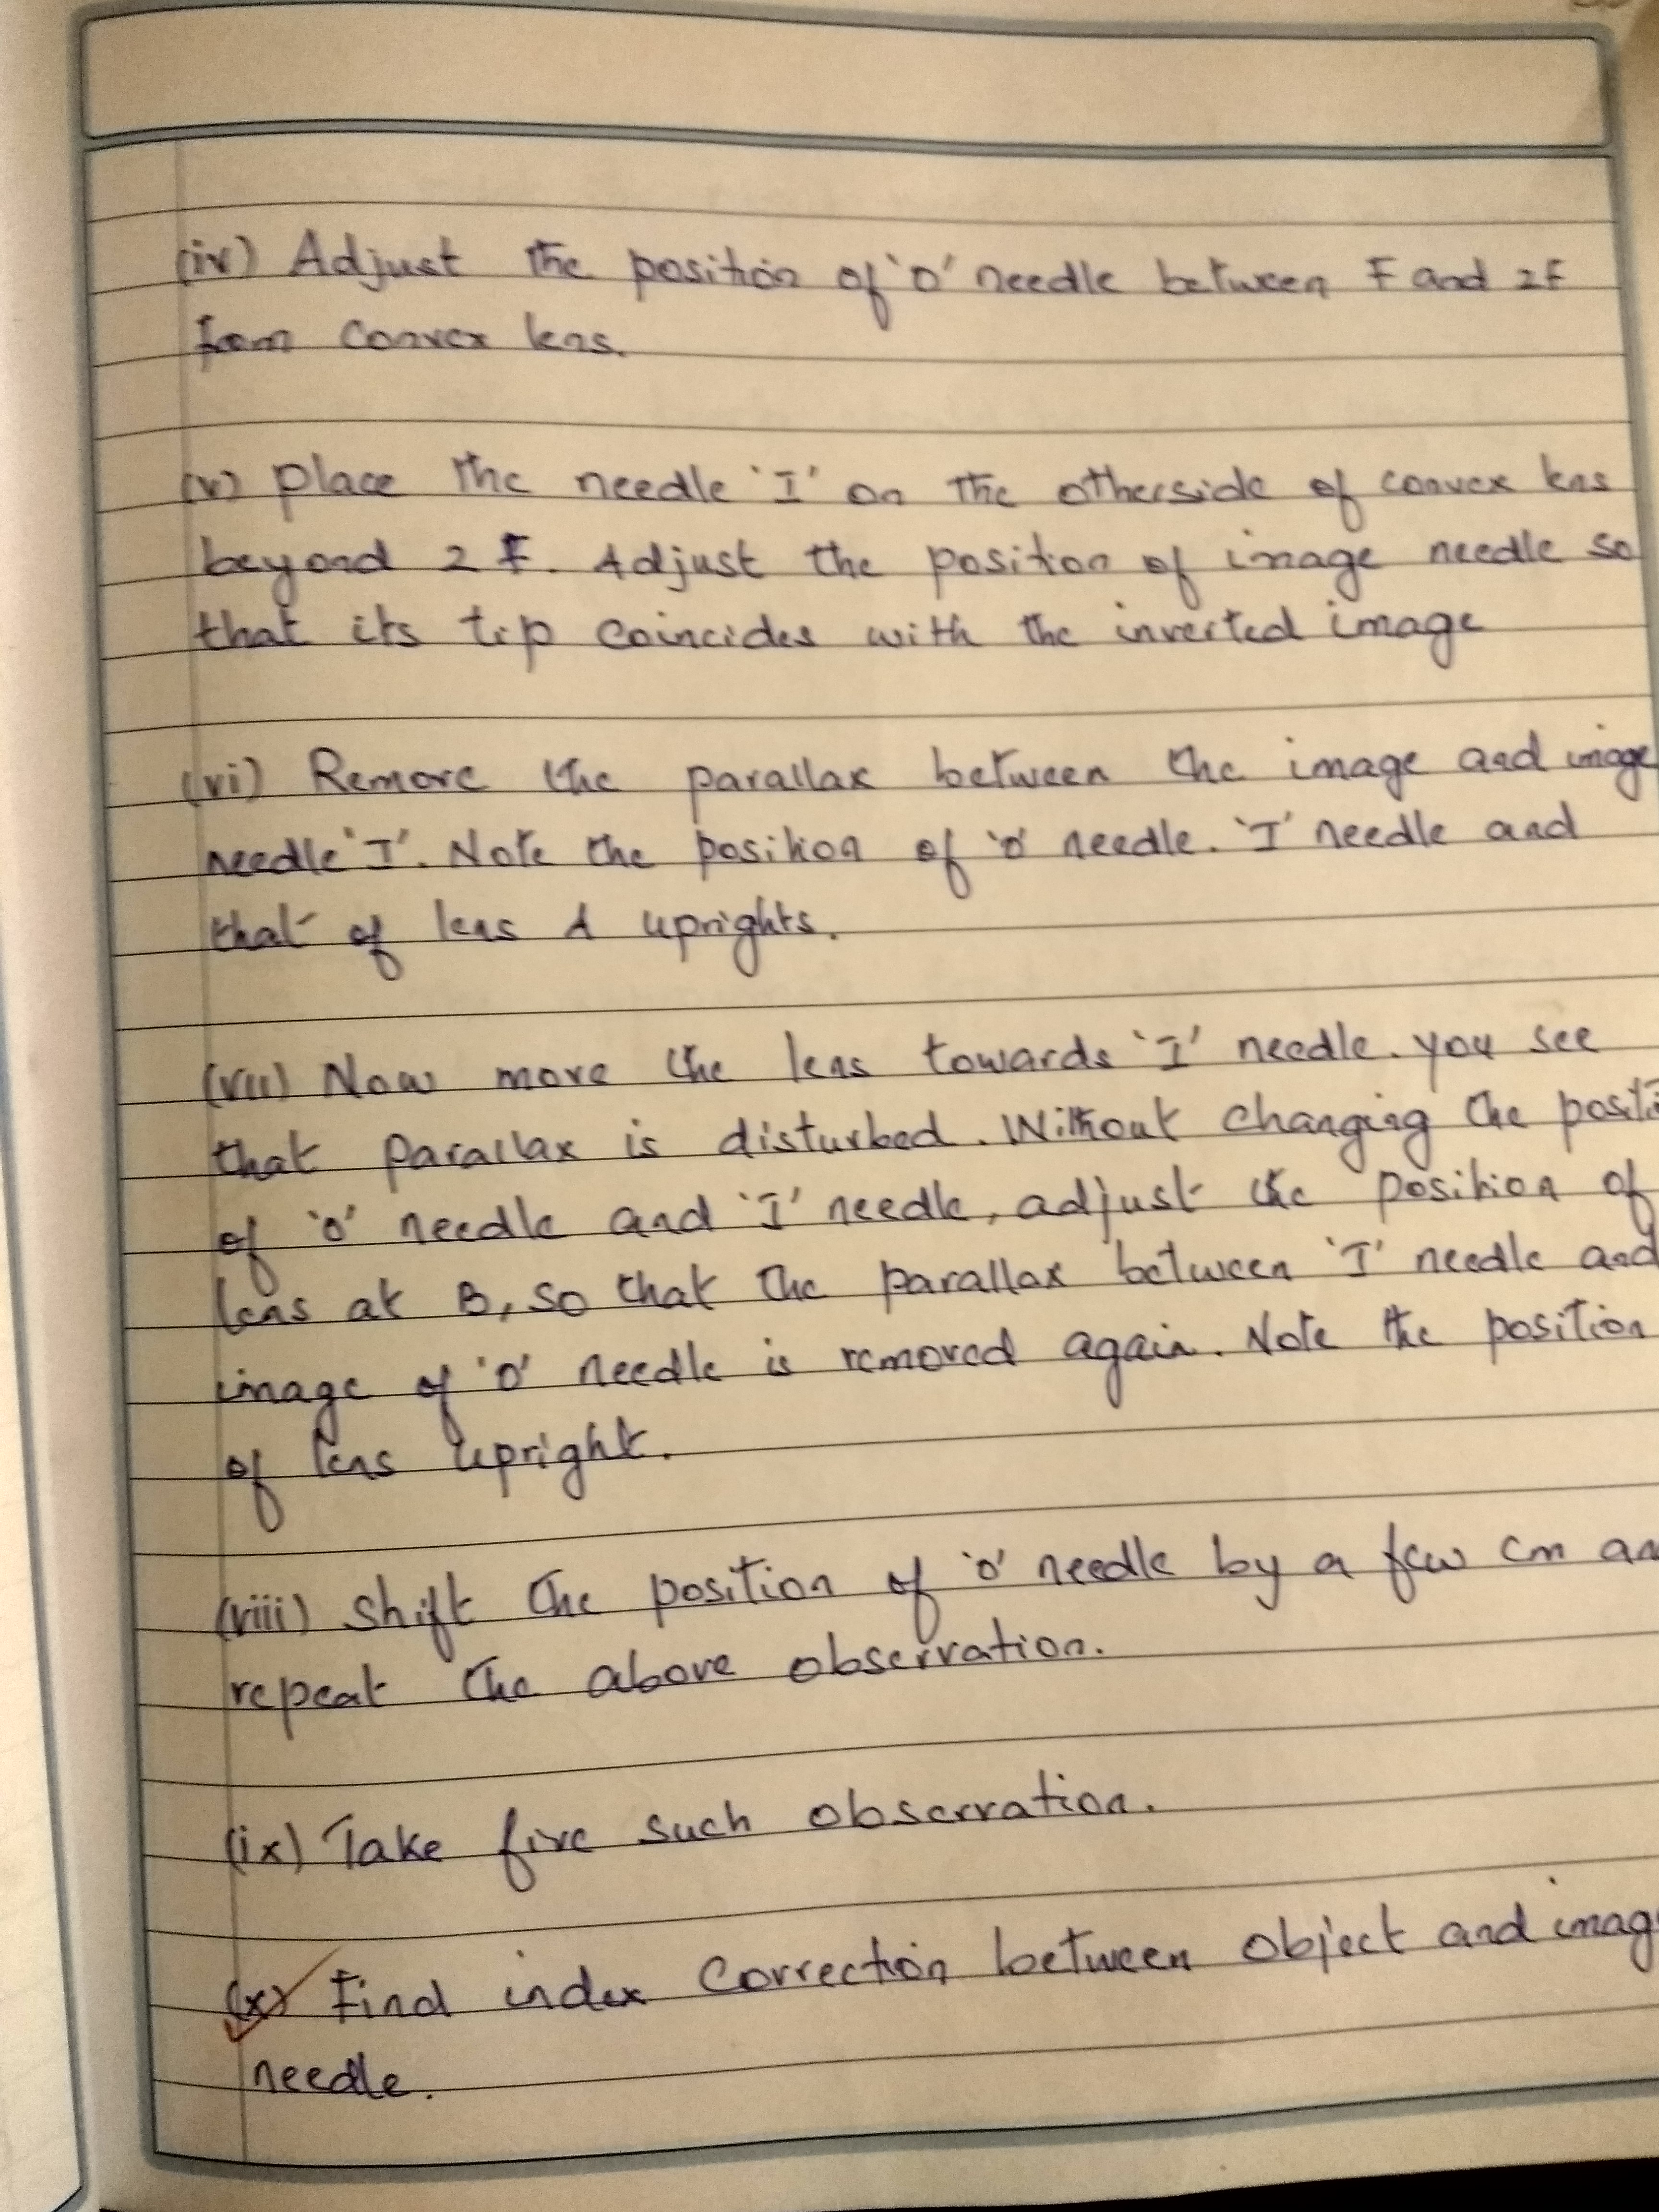 (iv) Adjust the position of 'O' needle between F and 2F
from convex lens.
(v) place the needle 'I' on the otherside of convex lens
beyond 2F. Adjust the position of image needle so
that its tip coincides with the inverted image
(vi) Remove the parallax between the image and image
needle 'I'. Note the position of 'O' needle. 'I' needle and
that of lens A uprights.
(vii) Now move the lens towards 'I' needle. you see
that parallax is disturbed. Without changing the positi
of 'O' needle and 'I' needle, adjust the position of
lens at B, so that the parallax between 'I' needle and
image of 'O' needle is removed again. Note the position
of lens upright.
(viii) Shift the position of 'O' needle by a few cm an
repeat the above observation.
(ix) Take five such observation.
(x) Find index correction between object and imag
needle.